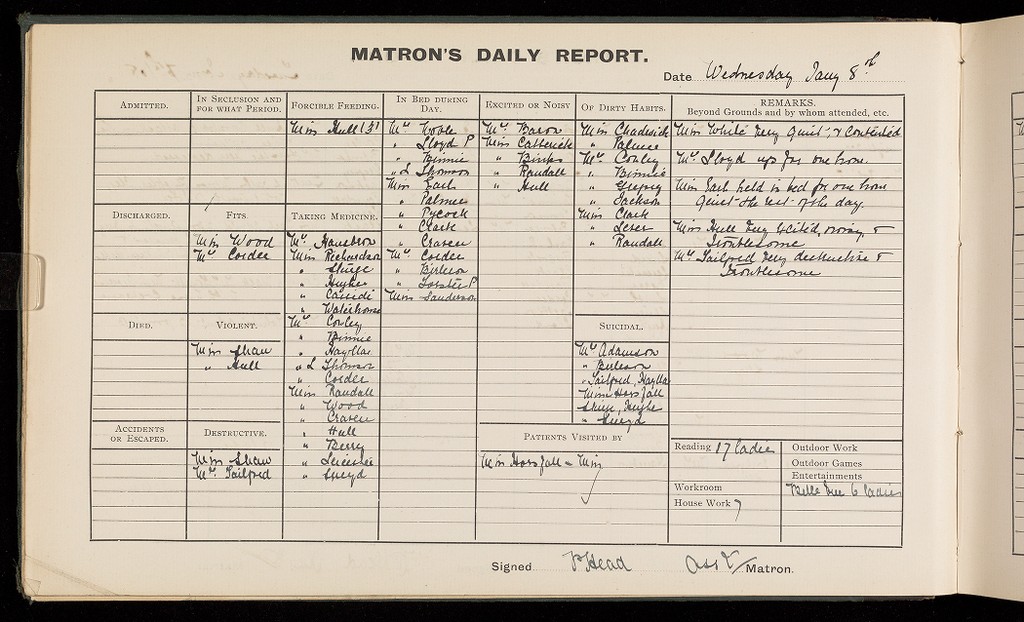 MATRON'S DAILY REPORT.
Date Wednesday Jany 8th
ADMITTED.
IN SECLUSION AND
FOR WHAT PERIOD.
FORCIBLE FEEDING.
Miss Hull (3)
IN BED DURING
DAY.
Mrs Noble
" Lloyd P
" Binnie
" L Thomson
Miss Gash
" Palmer
" Pycock
" Clark
" Craven
Mrs Corder
" Burleson
" Forster P
Miss Sanderson
EXCITED OR NOISY
Mrs Bacon
Miss Catterick
" Binks
" Randall
" Hull
OF DIRTY HABITS.
Miss Chadwick
" Palmer
Mrs Conley
" Binnie
" Jackson
Miss Clark
" Randall
REMARKS.
Beyond Grounds and by whom attended, etc.
Miss White very quiet, & contented
Mrs Lloyd up for one hour.
Miss Gash held in bed for one hour
quiet the rest of the day.
Miss Hull very excited, noisy, &
troublesome
Mrs Tailford very destructive &
troublesome
DISCHARGED.
FITS.
Miss Wood
Mrs Corder
TAKING MEDICINE.
Miss Richardson
" Hughes
" Waterhouse
Mrs Conley
" Binnie
" Haylla
" L Thomson
" Corder
Miss Randall
" Wood
" Craven
" Hull
" Berry
DIED.
VIOLENT.
Miss Shaw
" Hull
SUICIDAL.
Mrs Adamson
" Burleson
" Tailford, Haylla
Miss Horsfall
ACCIDENTS
OR ESCAPED.
DESTRUCTIVE.
Miss Shaw
Mrs Tailford
PATIENTS VISITED BY
Miss Horsfall
Reading 17 ladies
Workroom
House Work 7
Outdoor Work
Outdoor Games
Entertainments
Belle Vue 6 ladies
Signed Head Asst Matron.